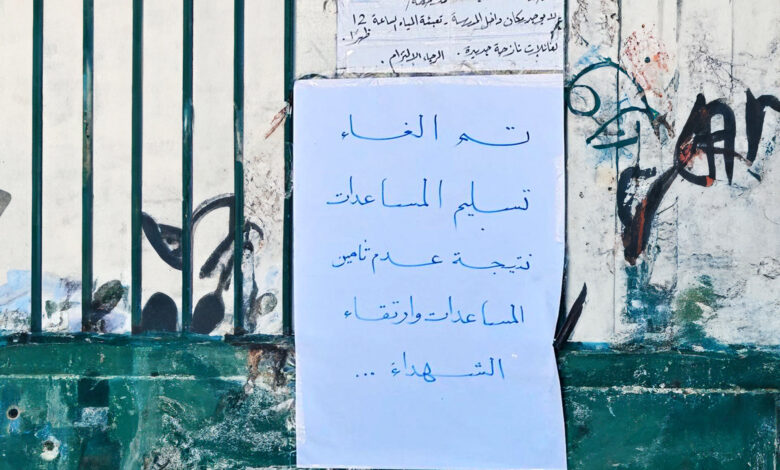 لا يوجد مكان داخل المدرسة . تعبئة المياه الساعة 12
ظهرا .
لعائلات نازحة جديدة . الرجاء الالتزام .
تم الغاء
تسليم المساعدات
نتيجة عدم تامين
المساعدات وارتقاء
الشهداء ...